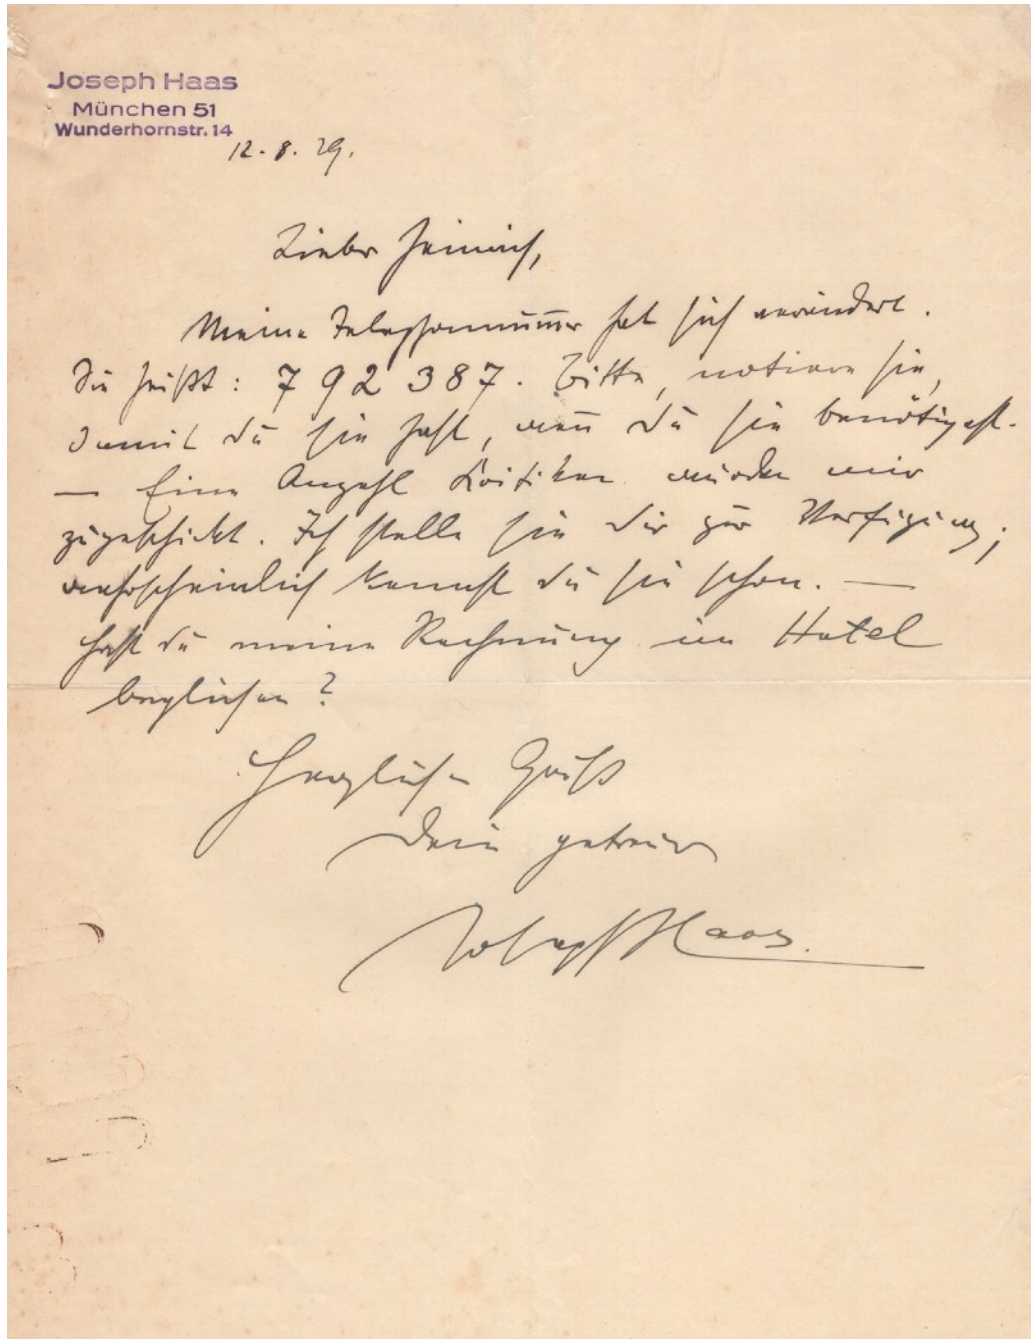 Joseph Haas
München 51
Wunderhornstr. 14
12. 8. 29.
Lieber Heinrich,
Meine Telephonnum̄er hat sich verändert.
Sie heißt: 792 387. Bitte, notiere sie,
damit du sie hast, wen̄ du sie benötigst.
— Eine Anzahl Kritiken wurden mir
zugeschickt. Ich stelle sie dir zur Verfügung;
wahrscheinlich kennst du sie schon. —
Hast du meine Rechnung im Hotel
beglichen?
Herzlichen Gruß
Dein getreuer
Joseph Haas.